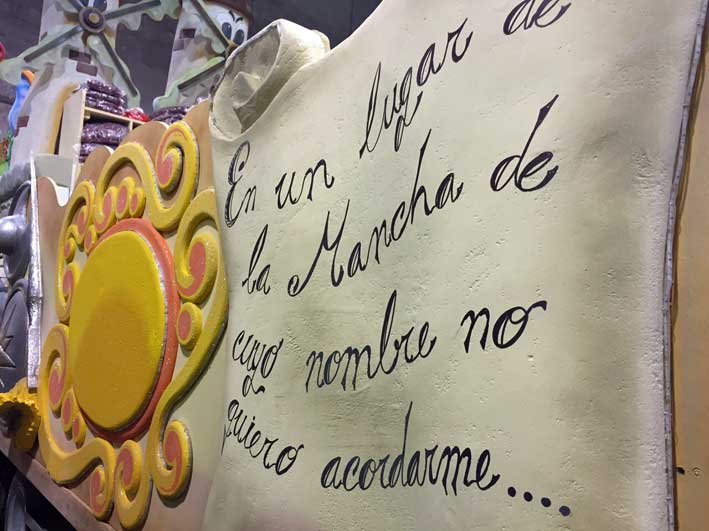 En un lugar de
la Mancha de
cuyo nombre no
quiero acordarme....